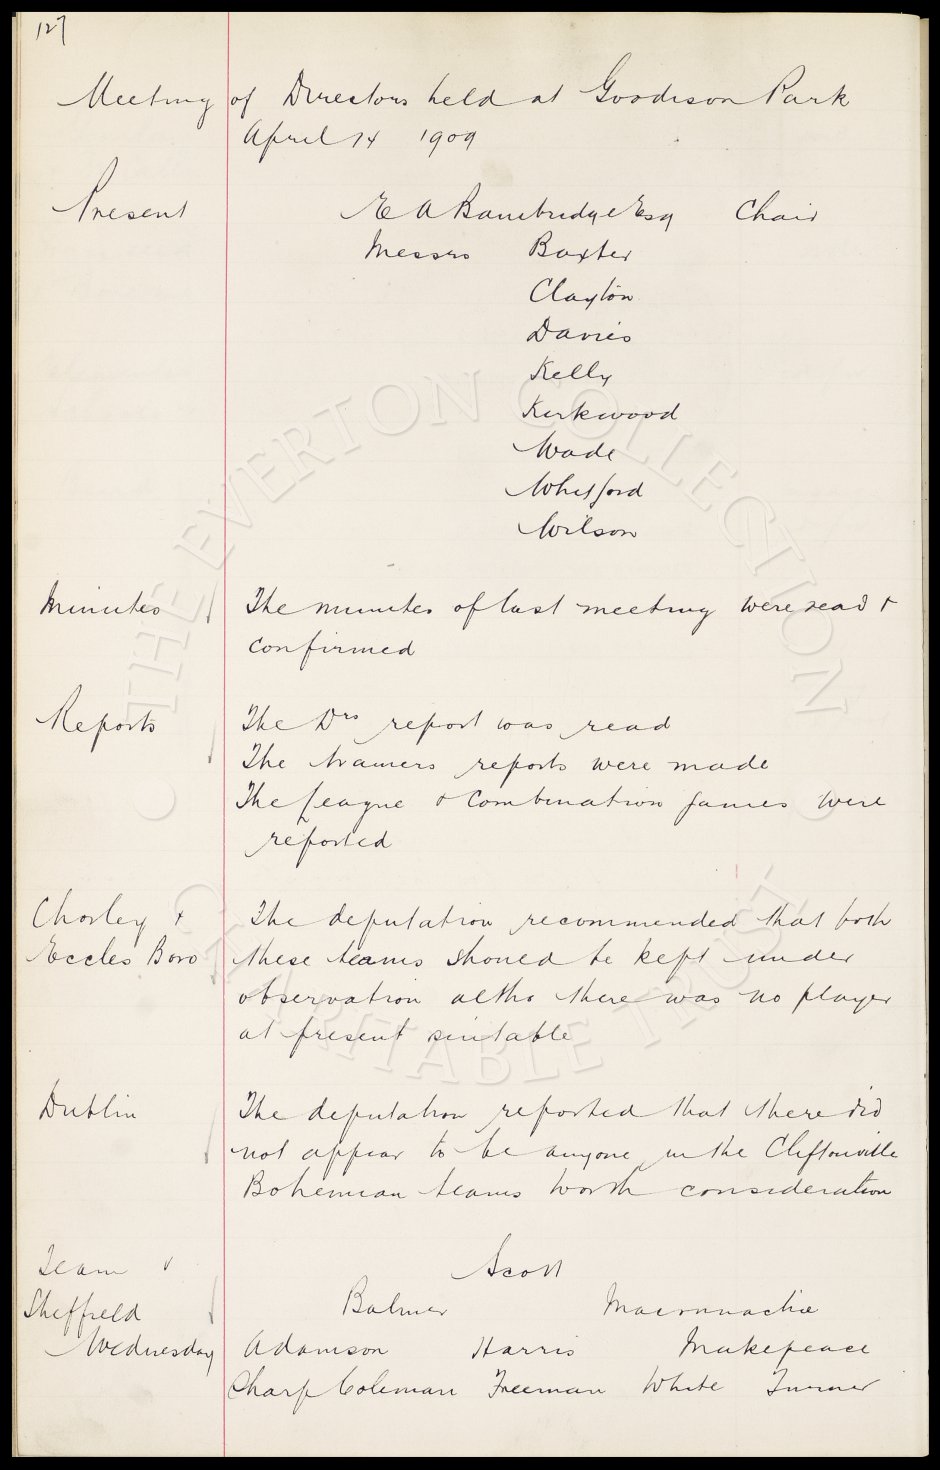 127
Meeting of Directors held at Goodison Park
April 14 1909
Present E A Bainbridge Esq Chair
Messrs Baxter
Clayton
Davies
Kelly
Kirkwood
Wade
Whitford
Wilson
Minutes The minutes of last meeting were read +
confirmed
Reports The Drs report was read
The trainers reports were made
The League & Combination games were
reported
Chorley + The deputation recommended that both
Eccles Boro these teams should be kept under
observation altho there was no player
at present suitable
Dublin The deputation reported that there did
not appear to be anyone in the Cliftonville
Bohemian teams worth consideration
Team v Scott
Sheffield Balmer Maconnachie
Wednesday Adamson Harris Makepeace
Sharp Coleman Freeman White Turner
THE EVERTON COLLECTION
CHARITABLE TRUST